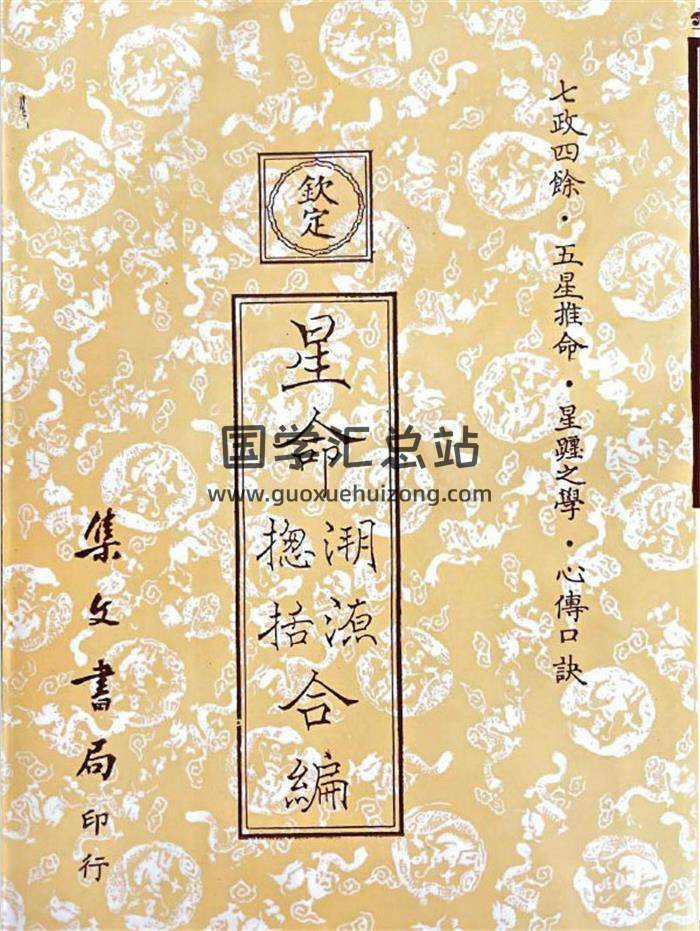 七政四餘・五星推命・星躔之學・心傳口訣
欽定
星命
溯源
摠括
合編
集文書局印行
国学汇总站
www.guoxuehuizong.com